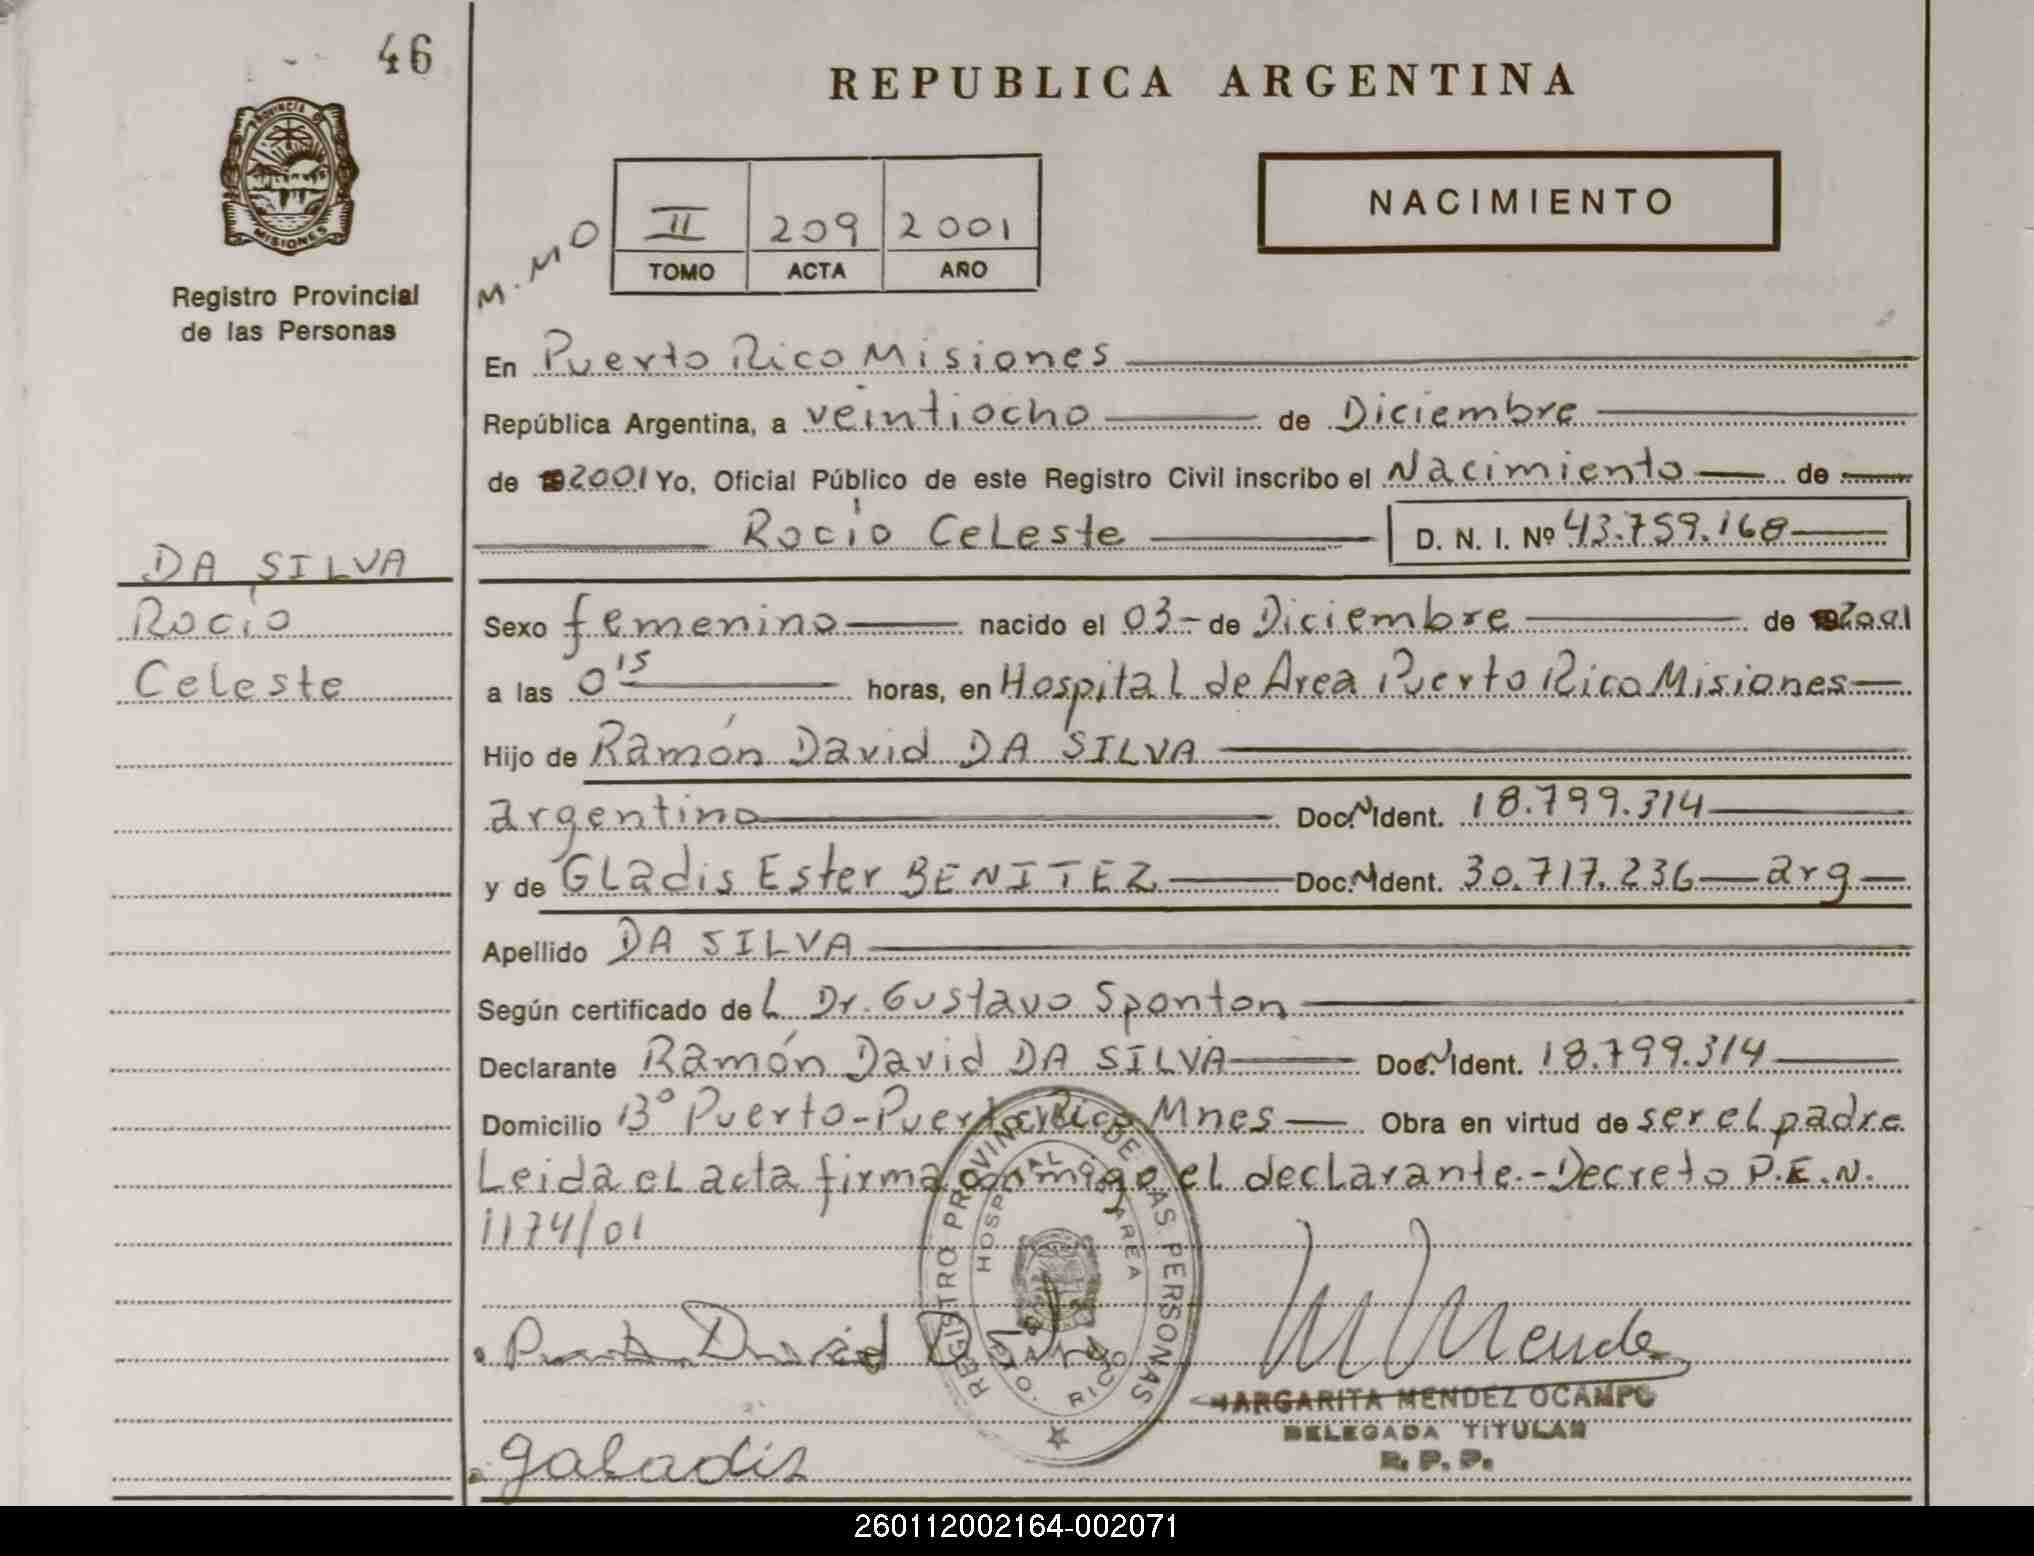 46
REPUBLICA ARGENTINA
PROVINCIA DE
MISIONES
Registro Provincial
de las Personas
NACIMIENTO
M.MO
II 209 2001
TOMO ACTA AÑO
En Puerto Rico Misiones
República Argentina, a veintiocho de Diciembre
de 2001 Yo, Oficial Público de este Registro Civil inscribo el Nacimiento de
Rocío Celeste D. N. I. Nº 43.759.168
DA SILVA
Rocío
Celeste
Sexo femenino nacido el 03- de Diciembre de 2001
a las 0 15 horas, en Hospital de Area Puerto Rico Misiones
Hijo de Ramón David DA SILVA
argentino Doc. Ident. 18.799.314
y de GLadis Ester BENITEZ Doc. Ident. 30.717.236 arg
Apellido DA SILVA
Según certificado de L Dr. Gustavo Sponton
Declarante Ramón David DA SILVA Doc. Ident. 18.799.314
Domicilio Bº Puerto-Puerto Rico Mnes Obra en virtud de ser el padre
Leida el acta firma conmigo el declarante.-Decreto P.E.N.
1174/01
REGISTRO PROVINCIAL DE LAS PERSONAS
HOSPITAL DE AREA
PTO. RICO
David
M Mende
MARGARITA MENDEZ OCAMPO
DELEGADA TITULAR
R. P. P.
260112002164-002071